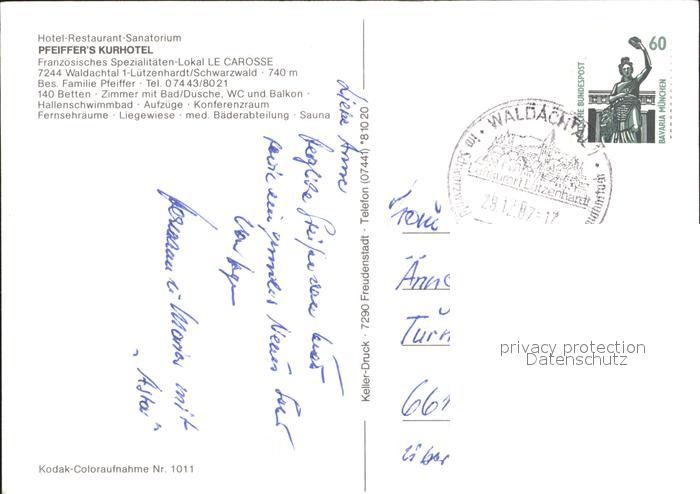 Hotel-Restaurant-Sanatorium
PFEIFFER'S KURHOTEL
Französisches Spezialitäten-Lokal LE CAROSSE
7244 Waldachtal 1-Lützenhardt/Schwarzwald · 740 m
Bes. Familie Pfeiffer · Tel. 07443/8021
140 Betten · Zimmer mit Bad/Dusche, WC und Balkon ·
Hallenschwimmbad · Aufzüge · Konferenzraum
Fernsehräume · Liegewiese · med. Bäderabteilung · Sauna
Liebe Änne
herzliche Grüße
sowie ein gesundes Neues Jahr
Hermann u. Maria mit
"Asta"
Keller-Druck · 7290 Freudenstadt · Telefon (07441) *81020
60
DEUTSCHE BUNDESPOST
BAVARIA MÜNCHEN
WALDACHTAL
Luftkurort Lützenhardt
Frau
Änne
Türk
661
über
privacy protection
Datenschutz
Kodak-Coloraufnahme Nr. 1011